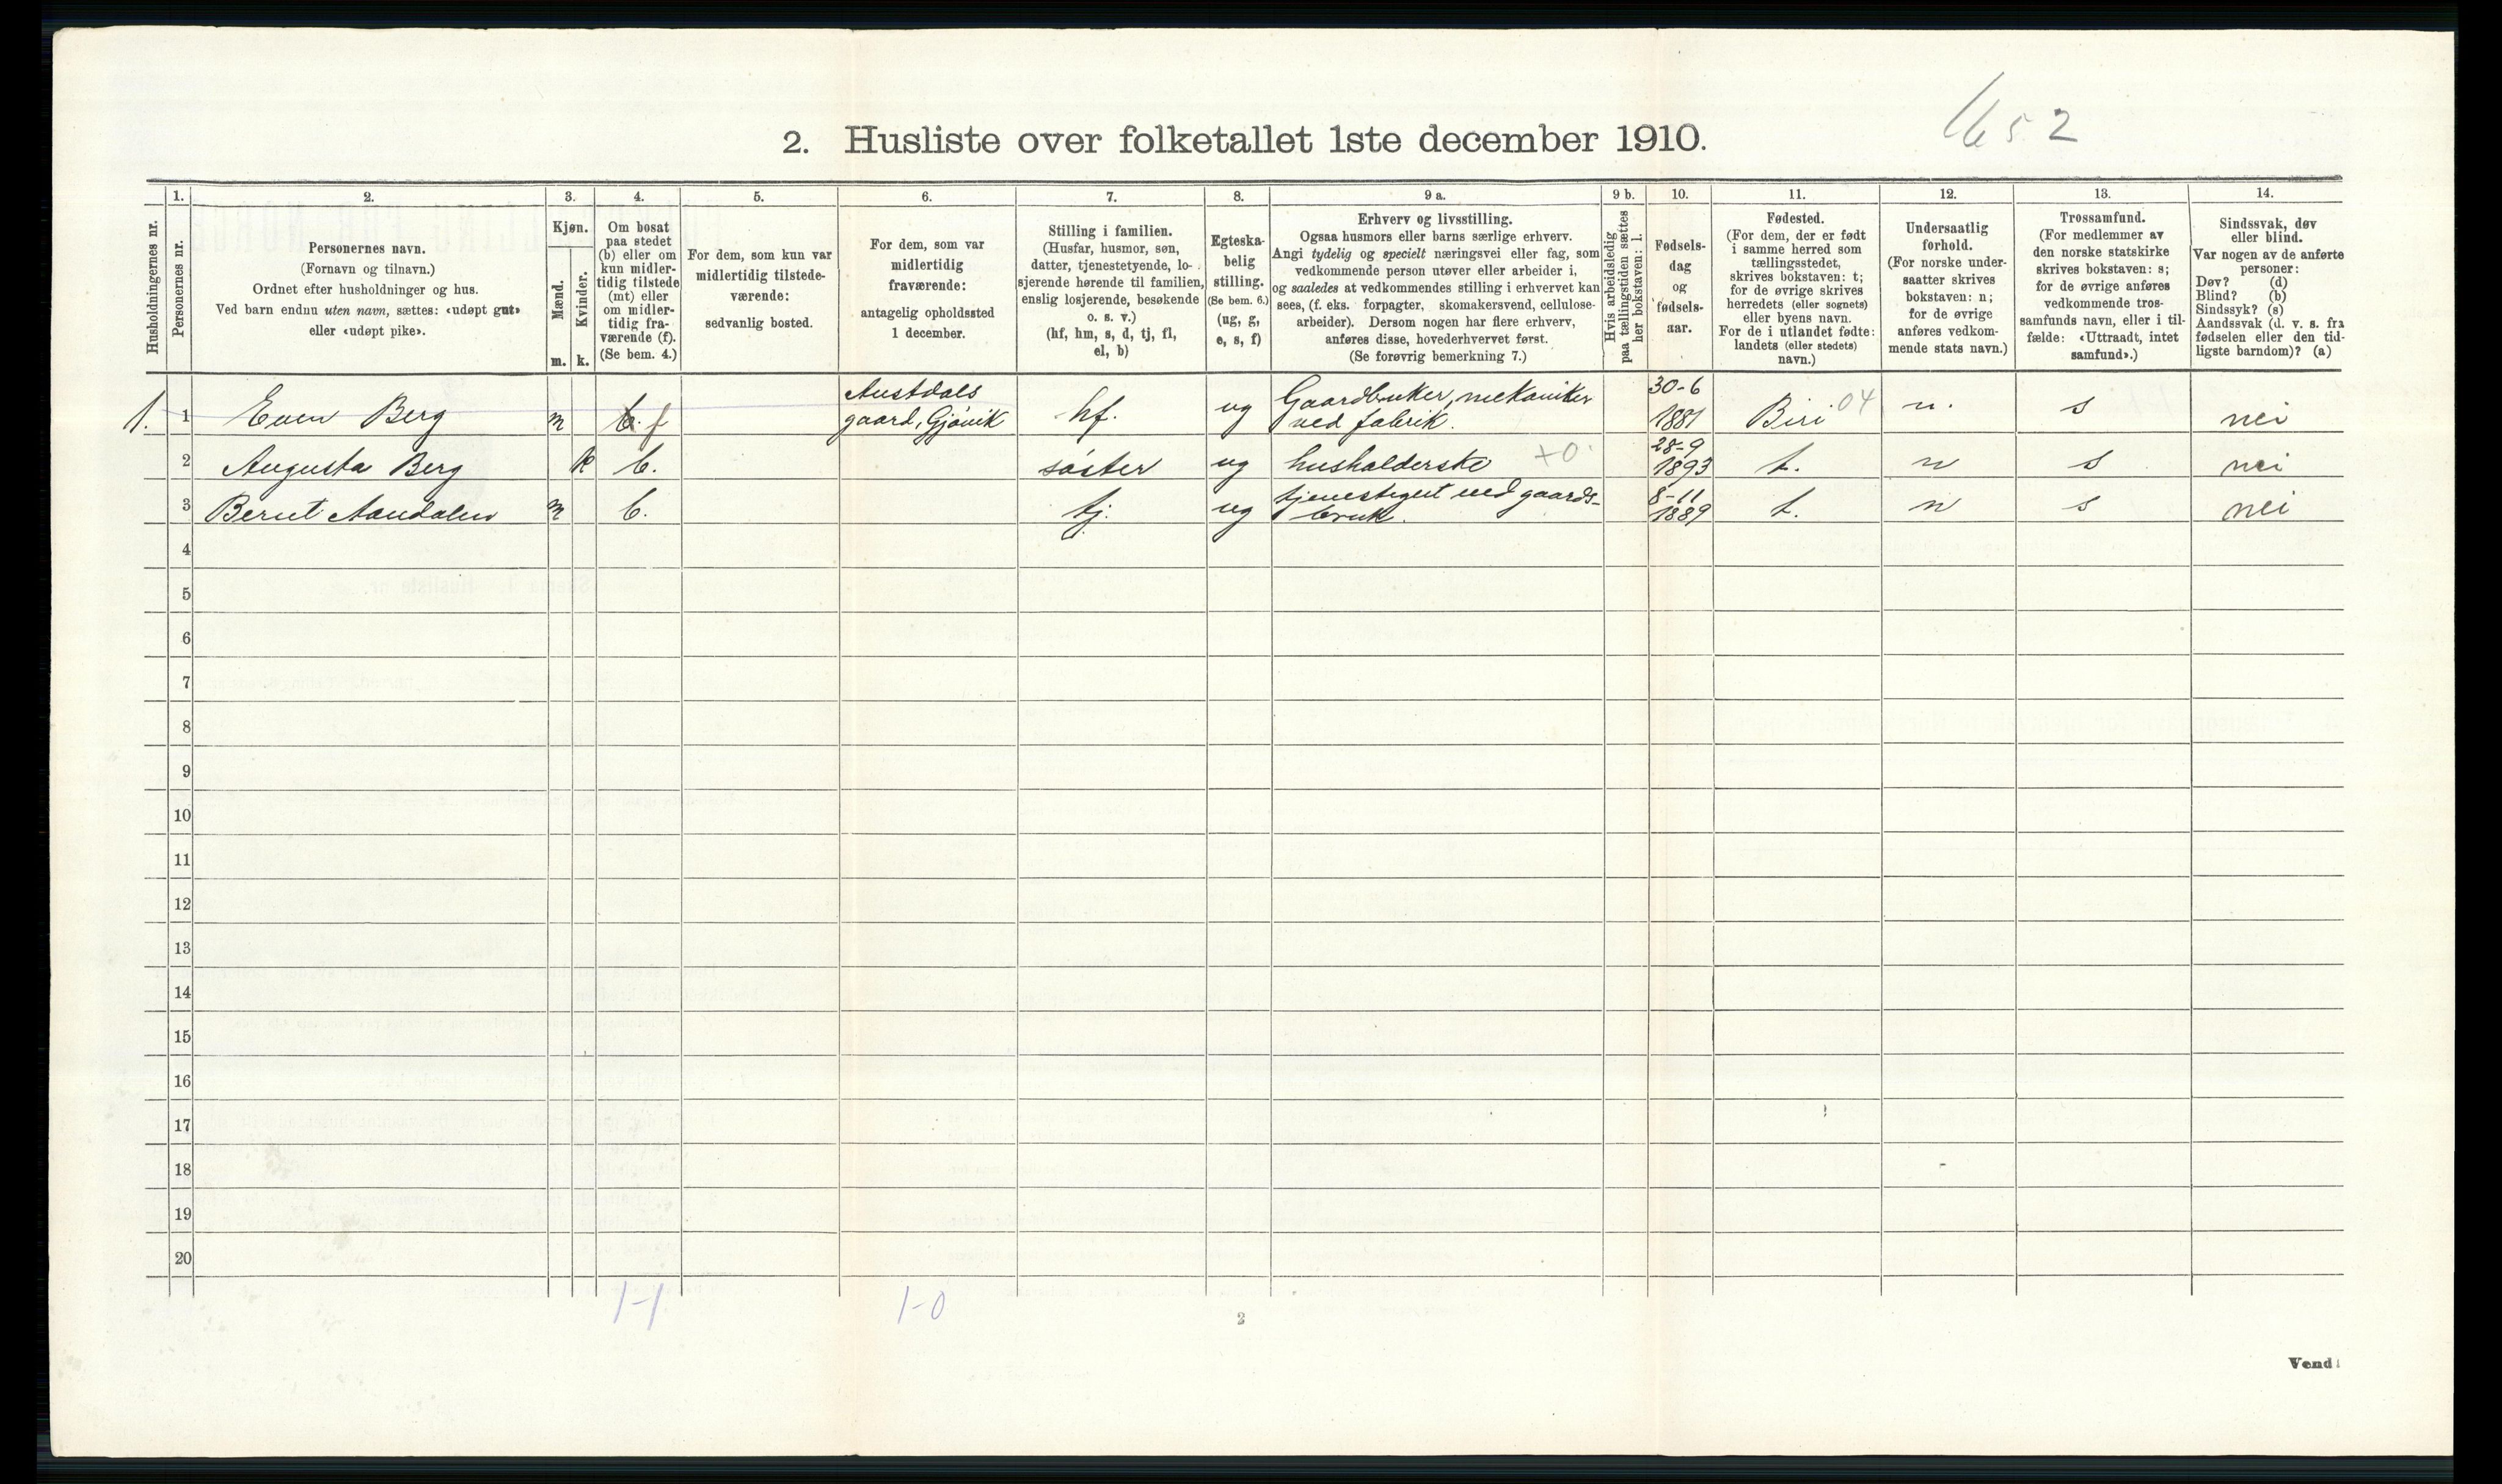 652
2. Husliste over folketallet 1ste december 1910.
Husholdningernes nr.
1.
Personernes nr.
2.
Personernes navn.
(Fornavn og tilnavn.)
Ordnet efter husholdninger og hus.
Ved barn endnu uten navn, sættes: «udøpt gut»
eller «udøpt pike».
3.
Kjøn.
Mænd.
m.
Kvinder.
k.
4.
Om bosat
paa stedet
(b) eller om
kun midler-
tidig tilstede
(mt) eller
om midler-
tidig fra-
værende (f).
(Se bem. 4.)
5.
For dem, som kun var
midlertidig tilstede-
værende:
sedvanlig bosted.
6.
For dem, som var
midlertidig
fraværende:
antagelig opholdssted
1 december.
7.
Stilling i familien.
(Husfar, husmor, søn,
datter, tjenestetyende, lo-
sjerende hørende til familien,
enslig losjerende, besøkende
o. s. v.)
(hf, hm, s, d, tj, fl,
el, b)
8.
Egteska-
belig
stilling.
(Se bem. 6.)
(ug, g,
e, s, f)
9 a.
Erhverv og livsstilling.
Ogsaa husmors eller barns særlige erhverv.
Angi tydelig og specielt næringsvei eller fag, som
vedkommende person utøver eller arbeider i,
og saaledes at vedkommendes stilling i erhvervet kan
sees, (f. eks. forpagter, skomakersvend, cellulose-
arbeider). Dersom nogen har flere erhverv,
anføres disse, hovederhvervet først.
(Se forøvrig bemerkning 7.)
9 b.
Hvis arbeidsledig
paa tællingstiden sættes
her bokstaven: l.
10.
Fødsels-
dag
og
fødsels-
aar.
11.
Fødested.
(For dem, der er født
i samme herred som
tællingsstedet,
skrives bokstaven: t;
for de øvrige skrives
herredets (eller sognets)
eller byens navn.
For de i utlandet fødte:
landets (eller stedets)
navn.)
12.
Undersaatlig
forhold.
(For norske under-
saatter skrives
bokstaven: n;
for de øvrige
anføres vedkom-
mende stats navn.)
13.
Trossamfund.
(For medlemmer av
den norske statskirke
skrives bokstaven: s;
for de øvrige anføres
vedkommende tros-
samfunds navn, eller i til-
fælde: «Uttraadt, intet
samfund».)
14.
Sindssvak, døv
eller blind.
Var nogen av de anførte
personer:
Døv? (d)
Blind? (b)
Sindssyk? (s)
Aandssvak (d. v. s. fra
fødselen eller den tid-
ligste barndom)? (a)
1. 1 Even Berg m b. f Austdals gaard, Gjøvik hf. ug Gaardbruker, mekaniker ved fabrik. 30-6 1881 Biri 04 n. s nei
2 Augusta Berg k b. søster ug husholderske +0 28-9 1893 t. n s nei
3 Bernt Aandalen m b. tj. ug tjenestegut ved gaards- bruk. 8-11 1889 t. n s nei
4
5
6
7
8
9
10
11
12
13
14
15
16
17
18
19
20
1-1 1-0
2
Vend!